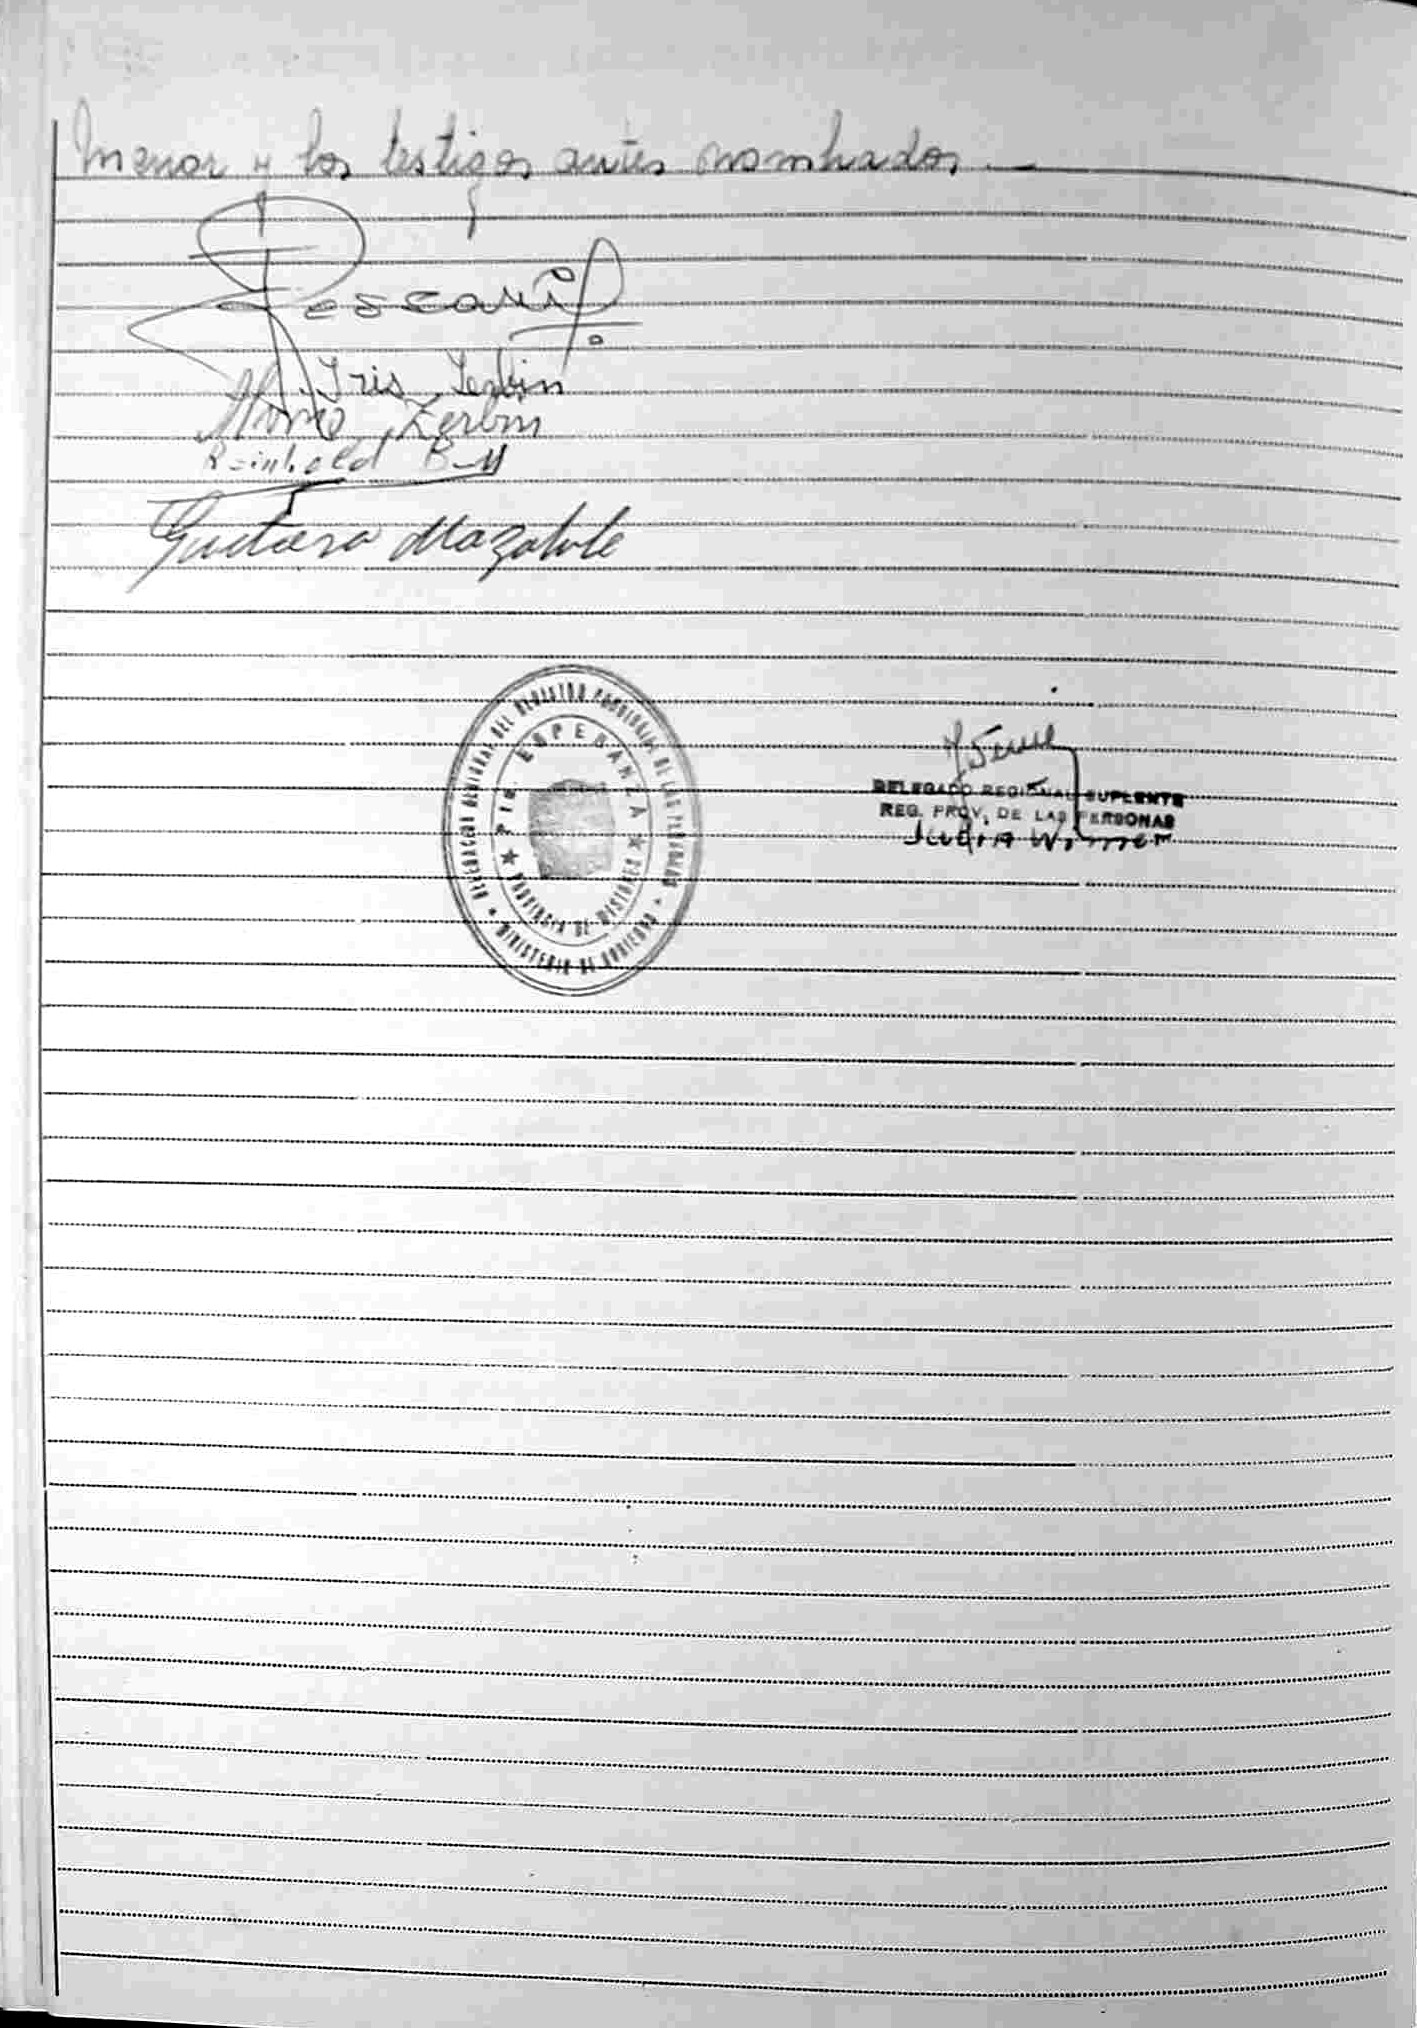 menor y los testigos antes nombrados. —
Pescarif
Iris Zerbin
Mario Zerbin
Reinhold
Gustavo
DELEGACION REGIONAL DEL REGISTRO PROVINCIAL DE LAS PERSONAS * MINISTERIO DE GOBIERNO *
PTO. ESPERANZA ★ PROVINCIA DE MISIONES ★
DELEGADO REGIONAL SUPLENTE
REG. PROV. DE LAS PERSONAS